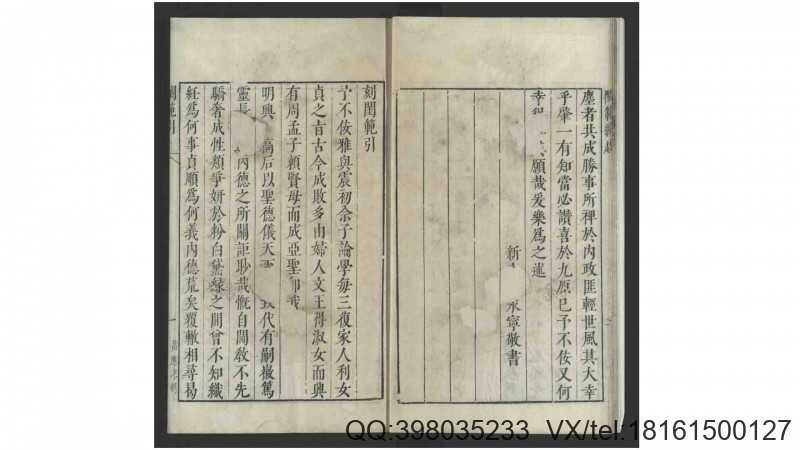 塵者共成勝事所裨於內政匪輕世風其大幸
乎肇一有知當必讚喜於九原已予不佞又何
幸 願哉爰樂爲之述
新 永寧敬書
刻閨範引
予不佞雅與震初余子論學每三復家人利女
貞之旨古今成敗多由婦人文王得淑女而興
有周孟子賴賢母而成亞聖
明興 高后以聖德儀天 代有嗣徽篤
靈長 內德之所關詎眇哉慨自閫教不先
驕奢成性類爭妍於粉白黛綠之間曾不知織
紝爲何事貞順爲何義內德荒矣覆轍相尋曷
QQ:398035233 VX/tel:18161500127